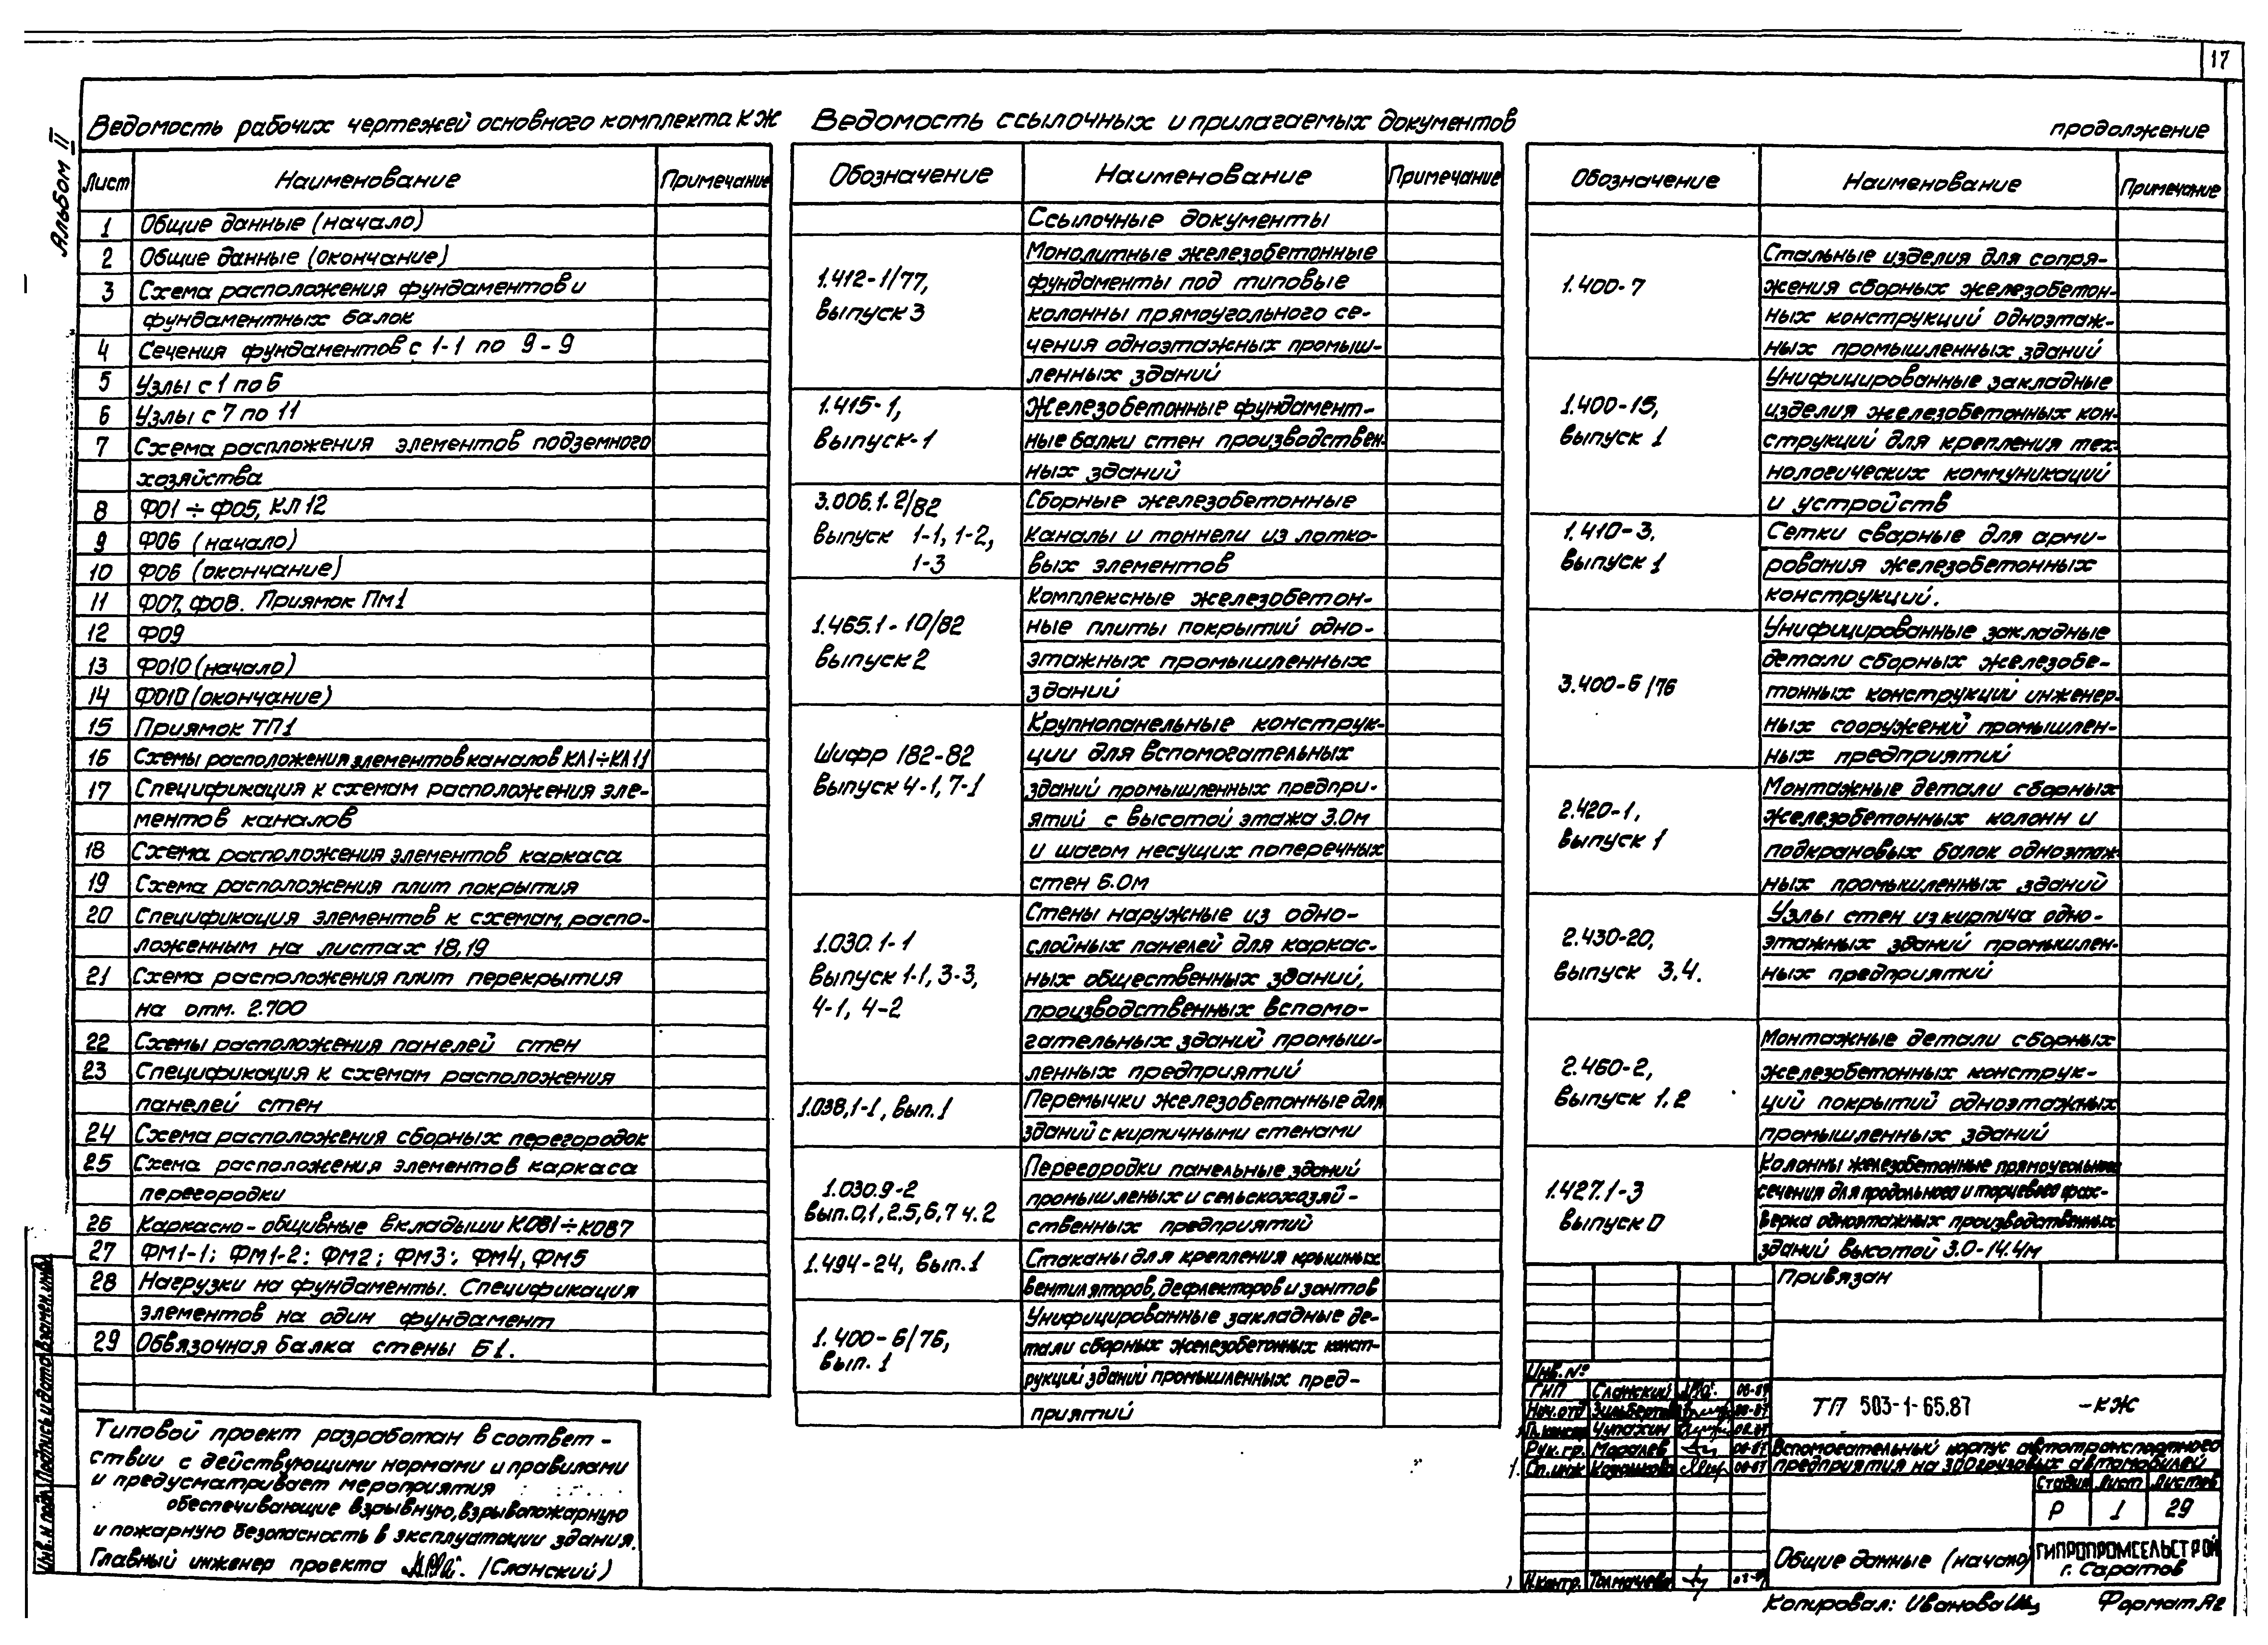 17
Альбом II
Ведомость рабочих чертежей основного комплекта КЖ
Лист Наименование Примечание
1 Общие данные (начало)
2 Общие данные (окончание)
3 Схема расположения фундаментов и
фундаментных балок
4 Сечения фундаментов с 1-1 по 9-9
5 Узлы с 1 по 6
6 Узлы с 7 по 11
7 Схема расположения элементов подземного
хозяйства
8 Ф01÷Ф05, КЛ12
9 Ф06 (начало)
10 Ф06 (окончание)
11 Ф07, Ф08. Приямок Пм1
12 Ф09
13 Ф010 (начало)
14 Ф010 (окончание)
15 Приямок ТП1
16 Схемы расположения элементов каналов КЛ1÷КЛ11
17 Спецификация к схемам расположения эле-
ментов каналов
18 Схема расположения элементов каркаса
19 Схема расположения плит покрытия
20 Спецификация элементов к схемам, распо-
ложенным на листах 18,19
21 Схема расположения плит перекрытия
на отм. 2.700
22 Схемы расположения панелей стен
23 Спецификация к схемам расположения
панелей стен
24 Схема расположения сборных перегородок
25 Схема расположения элементов каркаса
перегородки
26 Каркасно-обшивные вкладыши КОВ1÷КОВ7
27 ФМ1-1; ФМ1-2; ФМ2; ФМ3; ФМ4, ФМ5
28 Нагрузки на фундаменты. Спецификация
элементов на один фундамент
29 Обвязочная балка стены Б1.
Типовой проект разработан в соответ-
ствии с действующими нормами и правилами
и предусматривает мероприятия
обеспечивающие взрывную, взрывопожарную
и пожарную безопасность в эксплуатации здания.
Главный инженер проекта /Сланский/
Ведомость ссылочных и прилагаемых документов
Обозначение Наименование Примечание
Ссылочные документы
1.412-1/77,
выпуск 3
Монолитные железобетонные
фундаменты под типовые
колонны прямоугольного се-
чения одноэтажных промыш-
ленных зданий
1.415-1,
выпуск-1
Железобетонные фундамент-
ные балки стен производствен-
ных зданий
3.006.1-2/82
выпуск 1-1, 1-2,
1-3
Сборные железобетонные
каналы и тоннели из лотко-
вых элементов
1.465.1-10/82
выпуск 2
Комплексные железобетон-
ные плиты покрытий одно-
этажных промышленных
зданий
Шифр 182-82
Выпуск 4-1, 7-1
Крупнопанельные конструк-
ции для вспомогательных
зданий промышленных предпри-
ятий с высотой этажа 3.0м
и шагом несущих поперечных
стен 6.0м
1.030.1-1
выпуск 1-1, 3-3,
4-1, 4-2
Стены наружные из одно-
слойных панелей для каркас-
ных общественных зданий,
производственных вспомо-
гательных зданий промыш-
ленных предприятий
1.038,1-1, вып.1
Перемычки железобетонные для
зданий с кирпичными стенами
1.030.9-2
вып.0,1,2.5,6,7 ч.2
Перегородки панельные зданий
промышленых и сельскохозяй-
ственных предприятий
1.494-24, вып.1
Стаканы для крепления крышных
вентиляторов, дефлекторов и зонтов
1.400-6/76,
вып. 1
Унифицированные закладные де-
тали сборных железобетонных конст-
рукций зданий промышленных пред-
приятий
продолжение
Обозначение Наименование Примечание
1.400-7
Стальные изделия для сопря-
жения сборных железобетон-
ных конструкций одноэтаж-
ных промышленных зданий
1.400-15,
выпуск 1
Унифицированные закладные
изделия железобетонных кон-
струкций для крепления тех-
нологических коммуникаций
и устройств
1.410-3,
выпуск 1
Сетки сварные для арми-
рования железобетонных
конструкций.
3.400-6/76
Унифицированные закладные
детали сборных железобе-
тонных конструкций инженер-
ных сооружений промышлен-
ных предприятий
2.420-1,
выпуск 1
Монтажные детали сборных
железобетонных колонн и
подкрановых балок одноэтаж
ных промышленных зданий
2.430-20,
выпуск 3.4.
Узлы стен из кирпича одно-
этажных зданий промышлен-
ных предприятий
2.460-2,
выпуск 1.2
Монтажные детали сборных
железобетонных конструк-
ций покрытий одноэтажных
промышленных зданий
1.427.1-3
выпуск 0
Колонны железобетонные прямоугольного
сечения для продольного и торцевого фах-
верка одноэтажных производственных
зданий высотой 3.0-14.4м
Привязан
Инв.№
ГИП Сланский 08-87
Нач.отд 08-87
Гл.констр Чупахин 08.87
Рук.гр. Моралев 08-87
Ст.инж 08-87
Н.контр. Толмачева
ТП 503-1-65.87 -КЖ
Вспомогательный корпус автотранспортного
предприятия на 300 грузовых автомобилей
Стадия Лист Листов
Р 1 29
Общие данные (начало)
ГИПРОПРОМСЕЛЬСТРОЙ
г. Саратов
Копировал: Иванова Формат А2
Инв.№ подл. Подпись и дата Взамен.инв.